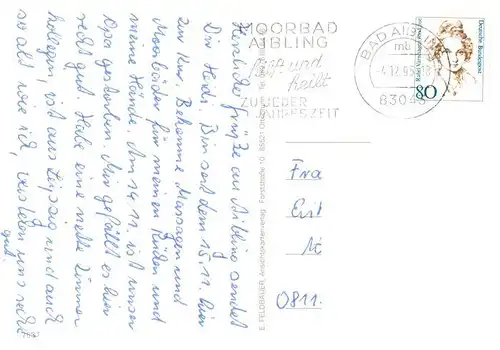 MOORBAD
AIBLING
ZU JEDER
JAHRESZEIT
BAD AIBLING
mb
-4.12.95-18
83043
Deutsche Bundespost
80
Herzliche Grüße aus Aibling sendet
Dir Heidi. Bin seit dem 15.11. hier
zur Kur. Bekomme Massagen und
Moorbäder für meinen Rücken und
meine Hände. Am 14.11. ist unser
Opa gestorben. Mir gefällt es hier
recht gut. Habe eine nette Zimmer
kollegin, ist aus Leipzig und auch
so alt wie ich, verstehen uns recht
gut.
E. FELDBAUER, Ansichtskartenverlag
Fra
Eri
0811.